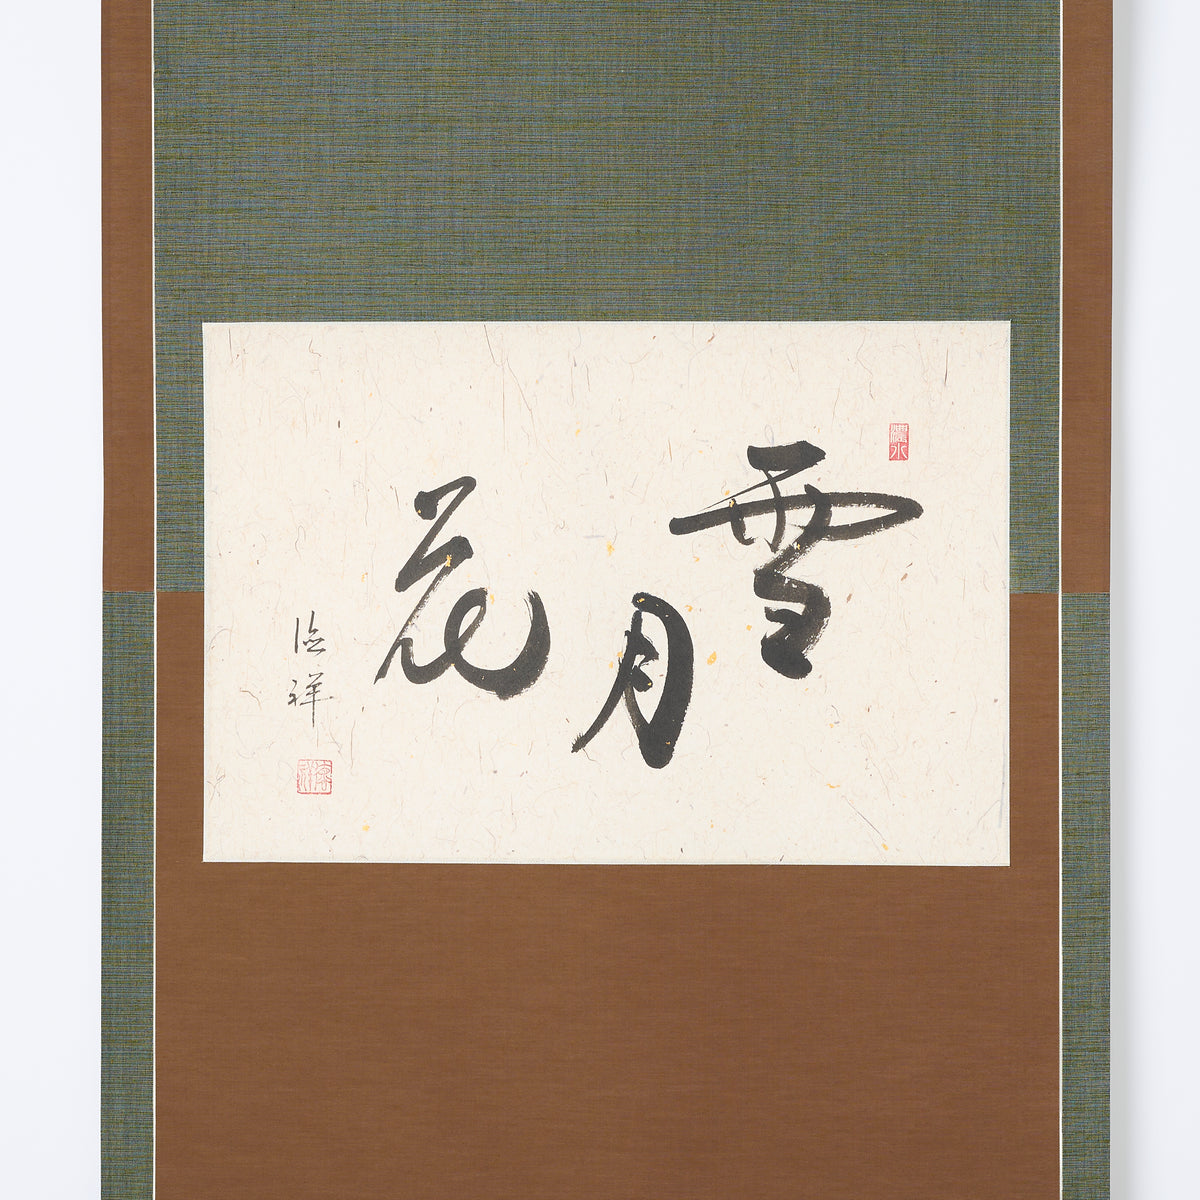 雪月花
徳祥